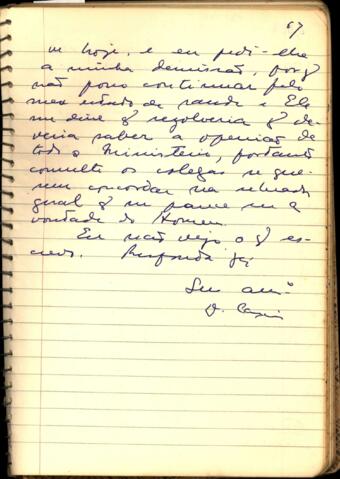 67
ve hoje, e eu pedi-lhe
a minha demissão, porq
não posso continuar pelo
meu estado de saude e Ele
me disse q resolveria q de-
veria saber a openião de
todo o Ministerio, portanto
consulte os colegas se que-
rem concordar na retirada
geral q me parece ser a
vontade do Homem.
Eu não vejo o q es-
crevo. Responda já
Seu amº
D. Caxias